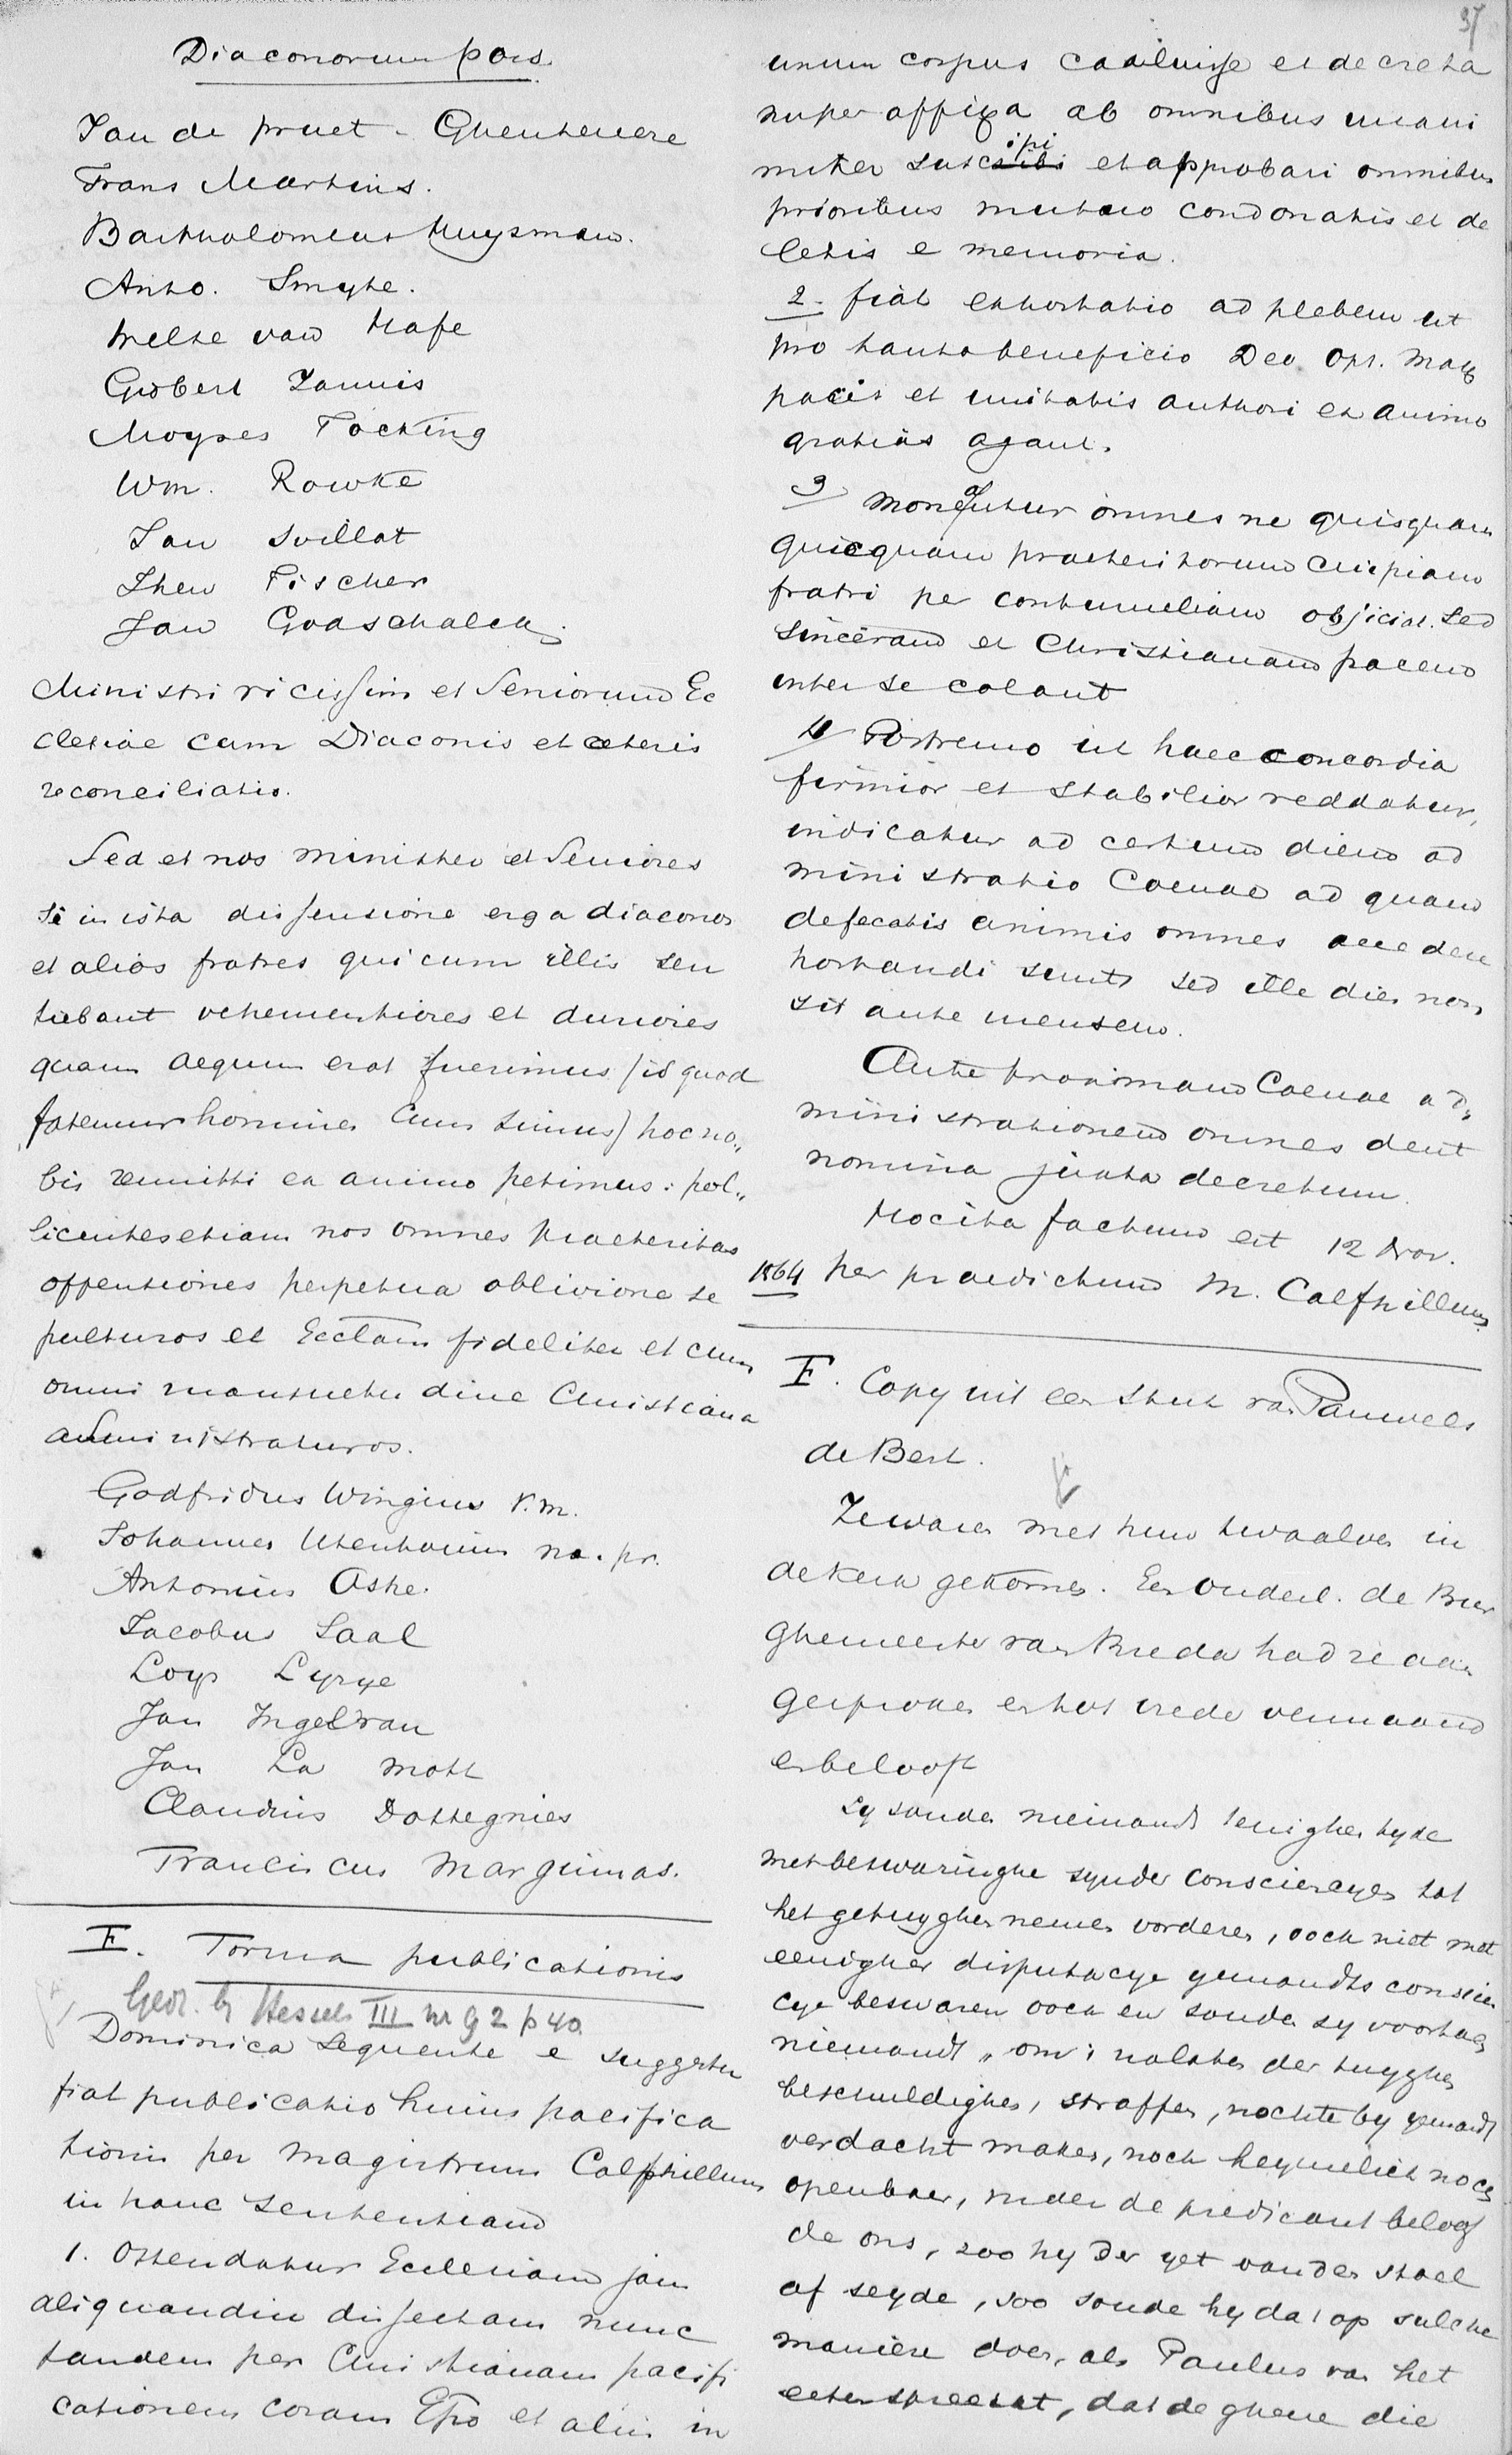 Diaconorum pars.
Jan de pruet - Ghentenere
Frans Martins.
Bartholomeus Huysman.
Anto. Smyte.
Melse van Hafe
Gisbert Jannis
Moyses Focking
Wm. Rowke
Jan Svillot
Jhen Fischer
Jan Godschalck.
Ministri vicissim et Seniorum Ec
clesiae cum Diaconis et ceteris
reconciliatio.
Sed et nos minister et Seniores
si in ista dissensione erga diaconos
et alios fratres qui cum illis sen
tiebant vehementiores et duriores
quam aequum erat fuerimus (id quod
fatemur homines cum simus) hoc no„
bis remitti ex animo petimus: pol„
licentes etiam nos omnes praeteritas
offentiones perpetua oblivione se
pulturos et Ecclam fideliter et cum
omni mansuetudine Christiana
administraturos.
Godfridus Wingius V.m.
Johannes Utenhovius no. pr.
Antonius Aske.
Jacobus Saal
Loys Lyrye
Jan Ingelran
Jan La Mott
Claudius Dottegnies
Franciscus Marquinas.
E. Forma publicationis
Gedr. by Hessels III nr 92 p 40.
Dominica sequente e suggestu
fiat publicatio huius pacifica
tionis per magistrum Calfhillum
in hanc sententiam
1. Ostendatur Ecclesiam jam
aliquandiu dissectam nunc
tandem per Christianam pacifi
cationem coram Epo et aliis in
37
unum corpus coaluisse et decreta
nuper affixa ab omnibus unani
miter suscipi et approbari omnibus
prioribus mutuo condonatis et de
letis e memoria.
2. fiat exhortatio ad plebem ut
pro tanto beneficio Deo Opt. Max
pacis et unitatis authori ex animo
gratias agant.
3 Moneantur omnes ne quisquam
quicquam praeteritorum cuipiam
fratri per contumeliam objiciat. Sed
sinceram et Christianam pacem
inter se colant
4 Postremo ut haec concordia
firmior et stabilior reddatur,
indicatur ad certum diem ad
ministratio Coenae ad quam
defecatis animis omnes accedere
hortandi sunt, sed ille dies non
sit ante mensem.
Ante proximam Coenae ad„
ministrationem omnes dent
nomina juxta decretum.
Hoc ita factum est 12 Nov.
1564 per praedictum M. Calfhillum
F. Copy uit een stuk van Pauwels
de Bert.
Ze waren met hun twaalven in
de kerk gekomen. Een ouderl. de Bur
ghemeester van Breda had ze aan
gesproken en tot vrede vermaand
en belooft
Sy souden niemandt teenigher tyde
met beswaringhe synder consciencyen tot
het getuyghen nemen vorderen, ooch niet met
eenigher disputacye yemandts conscien
cye beswaren ooch en souden sy voortaen
niemandt „ om nalaten der tuyghen
beschuldighen, straffen, nochte by yemandt
verdacht maken, noch heymelick noch
openbaer, Mder de predicant beloof
de ons, zoo hy der yet vanden stoel
af seyde, soo soude hy dat op sulcke
maniere doen, als Paulus van het
eeten spreekt, dat de ghene die